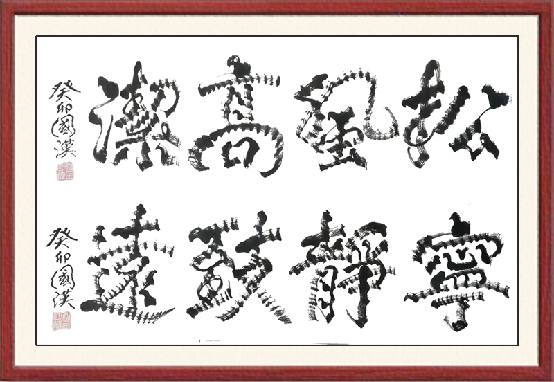 松風高潔
癸卯國漢
寧靜致遠
癸卯國漢